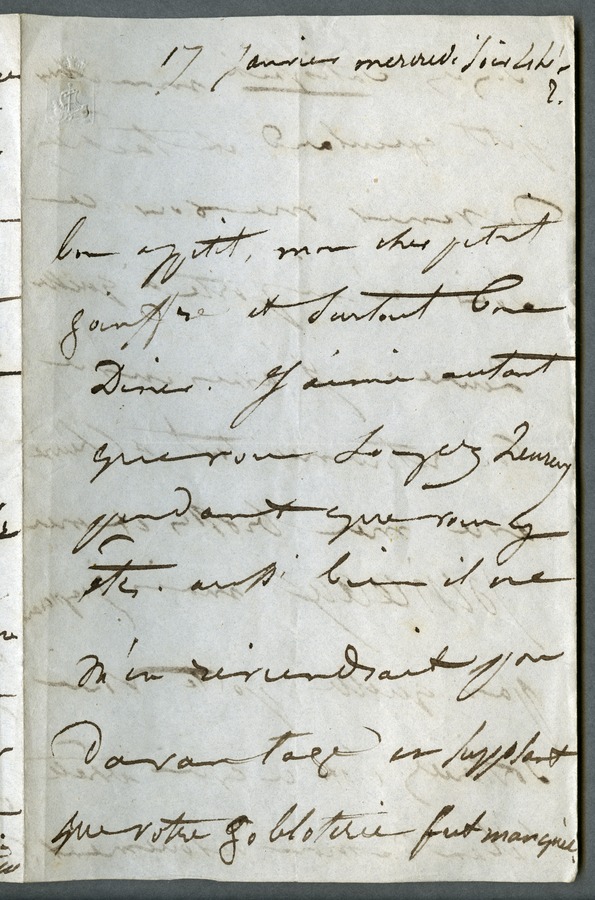 17 Janvier mercredi soir 4h ½
2.
bon appétit, mon cher petit
goinffre et surtout bon
Diner. J'aime autant
que vous soyez heureux
pendant que vous y
êtes. aussi bien il ne
m'en reviendrait pas
davantage en supposant
que votre gobloterie fut manquée